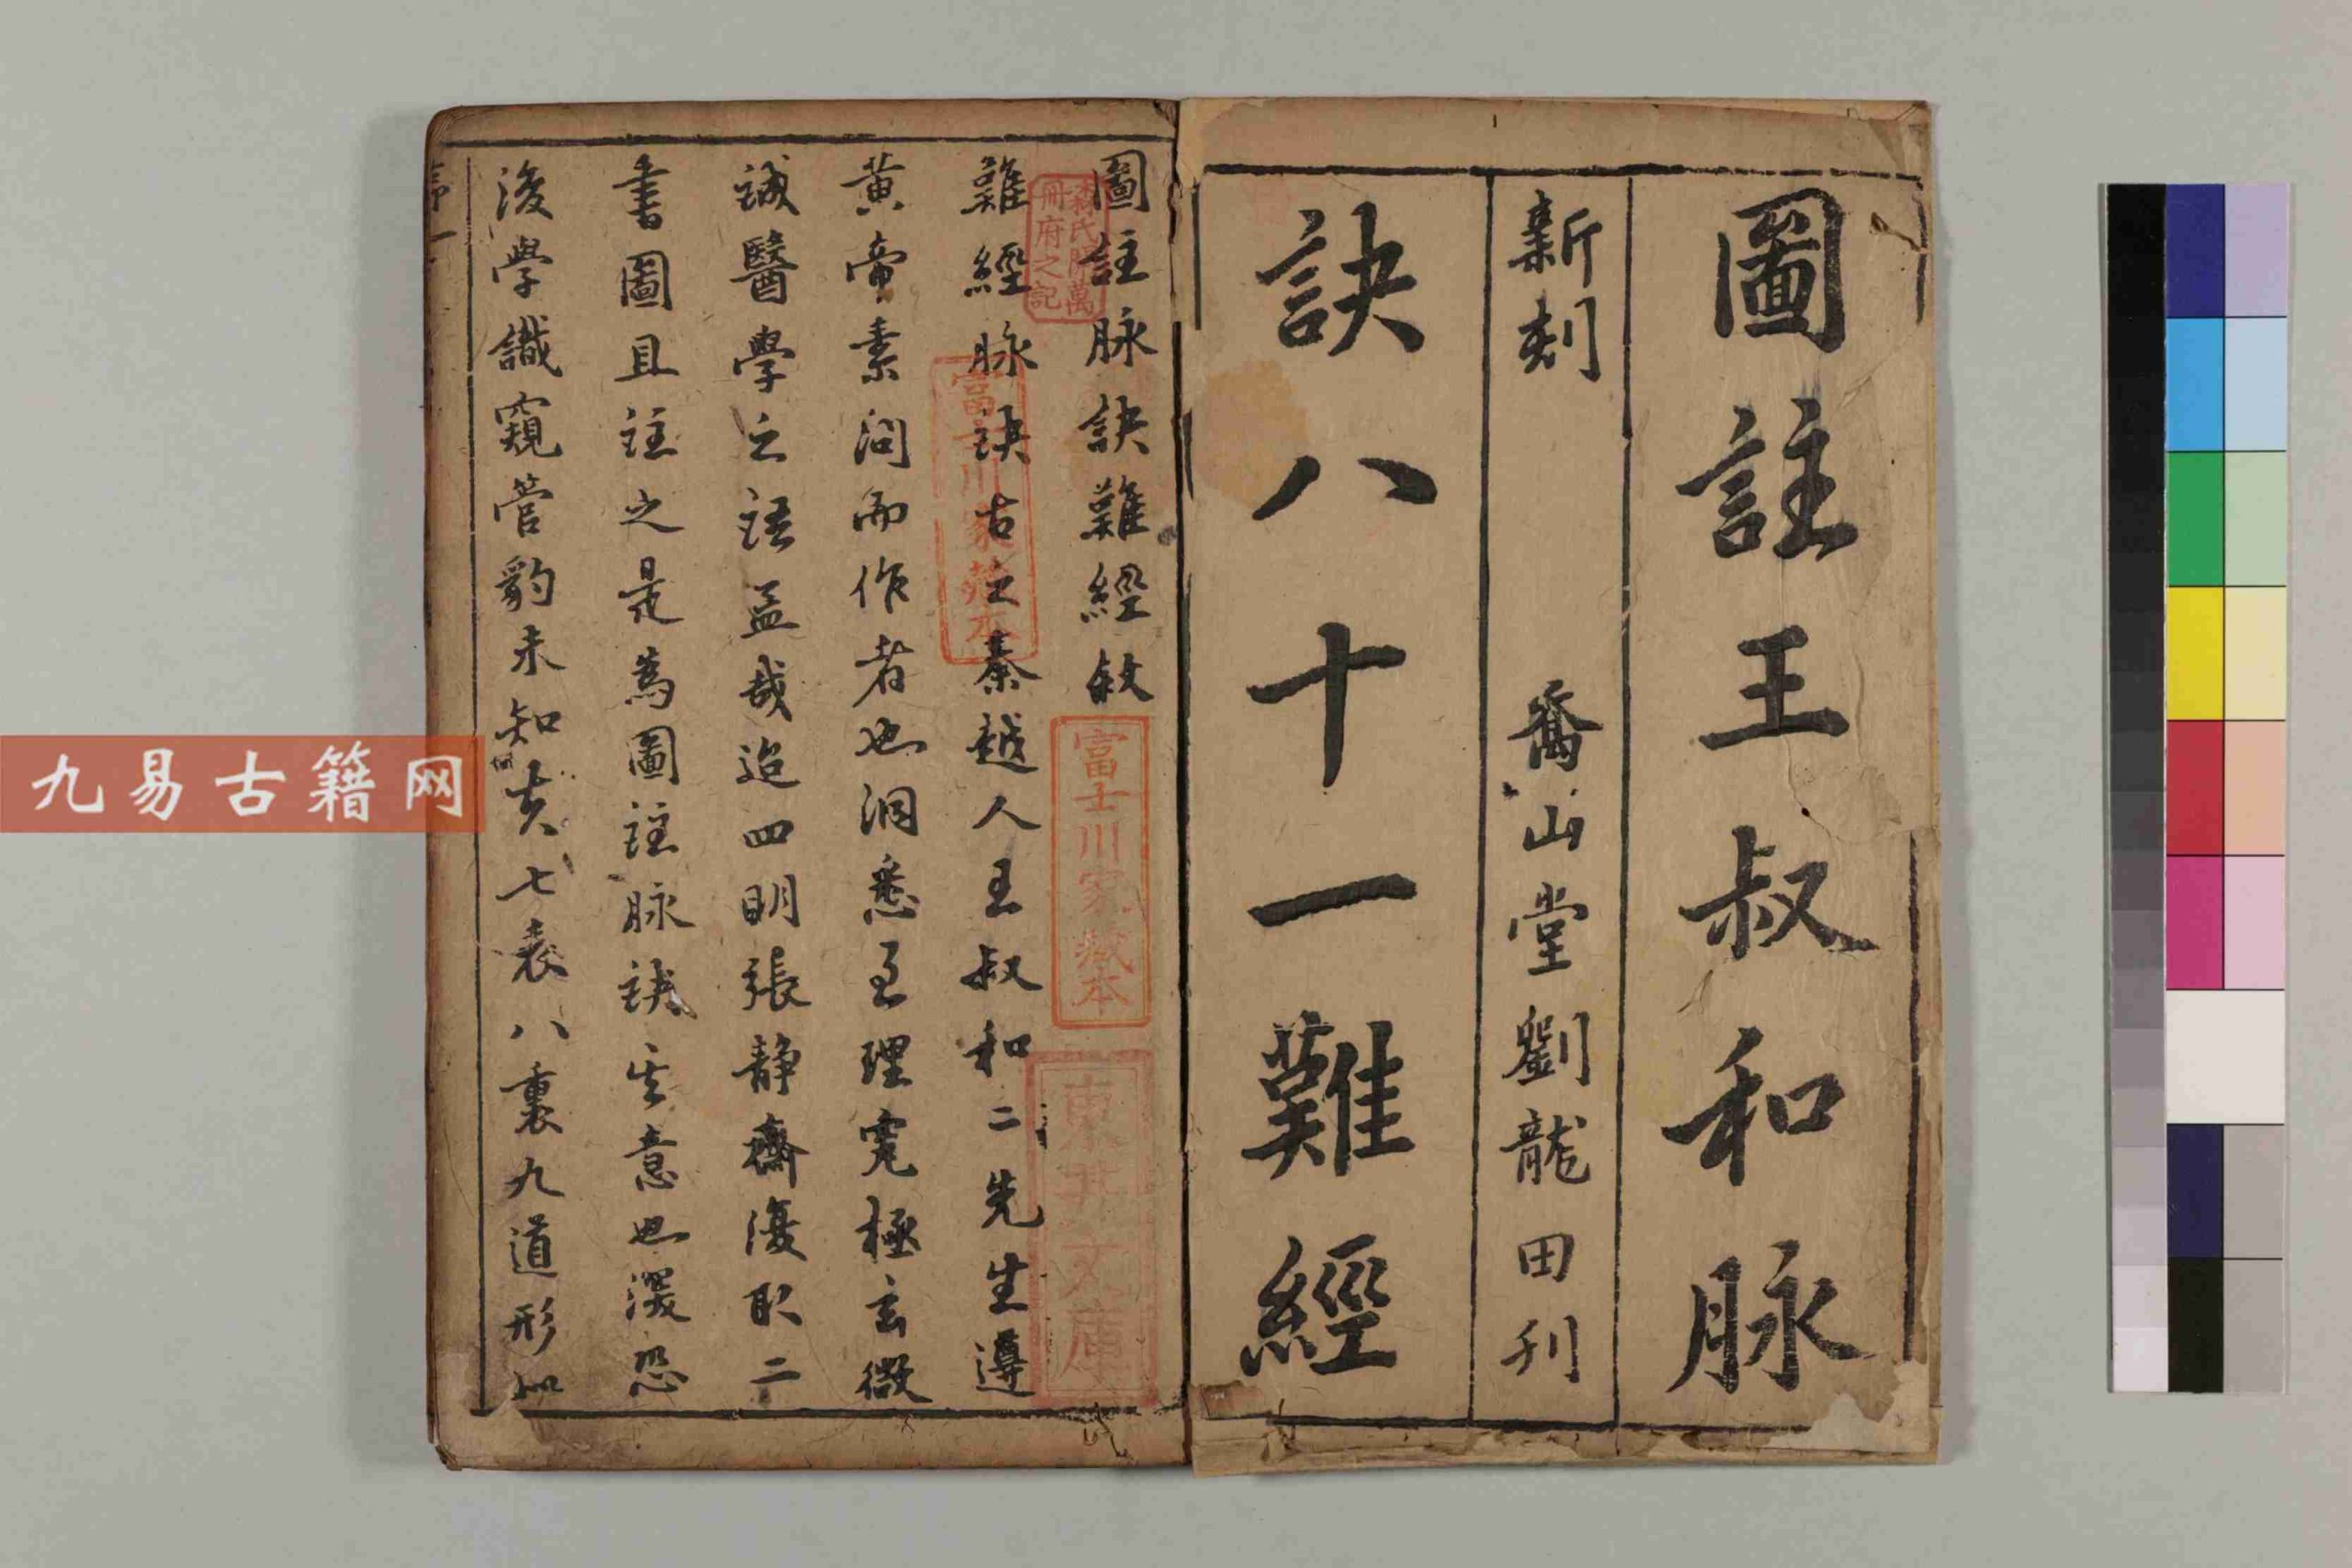 圖註王叔和脉
新刻 喬山堂劉龍田刊
訣八十一難經
圖註脉訣難經敘
難經脉訣古之秦越人王叔和二先生遵
黃帝素問而作者也洞悉至理究極玄微
誠醫學之 哉迨四明張靜齋復取二
書圖且註之是為圖註脉訣 意也深恐
後學識窺管豹未知 七表八裏九道形如
森氏開萬
冊府之記
富士川家藏本
富士川家藏本
東井文庫
九易古籍网